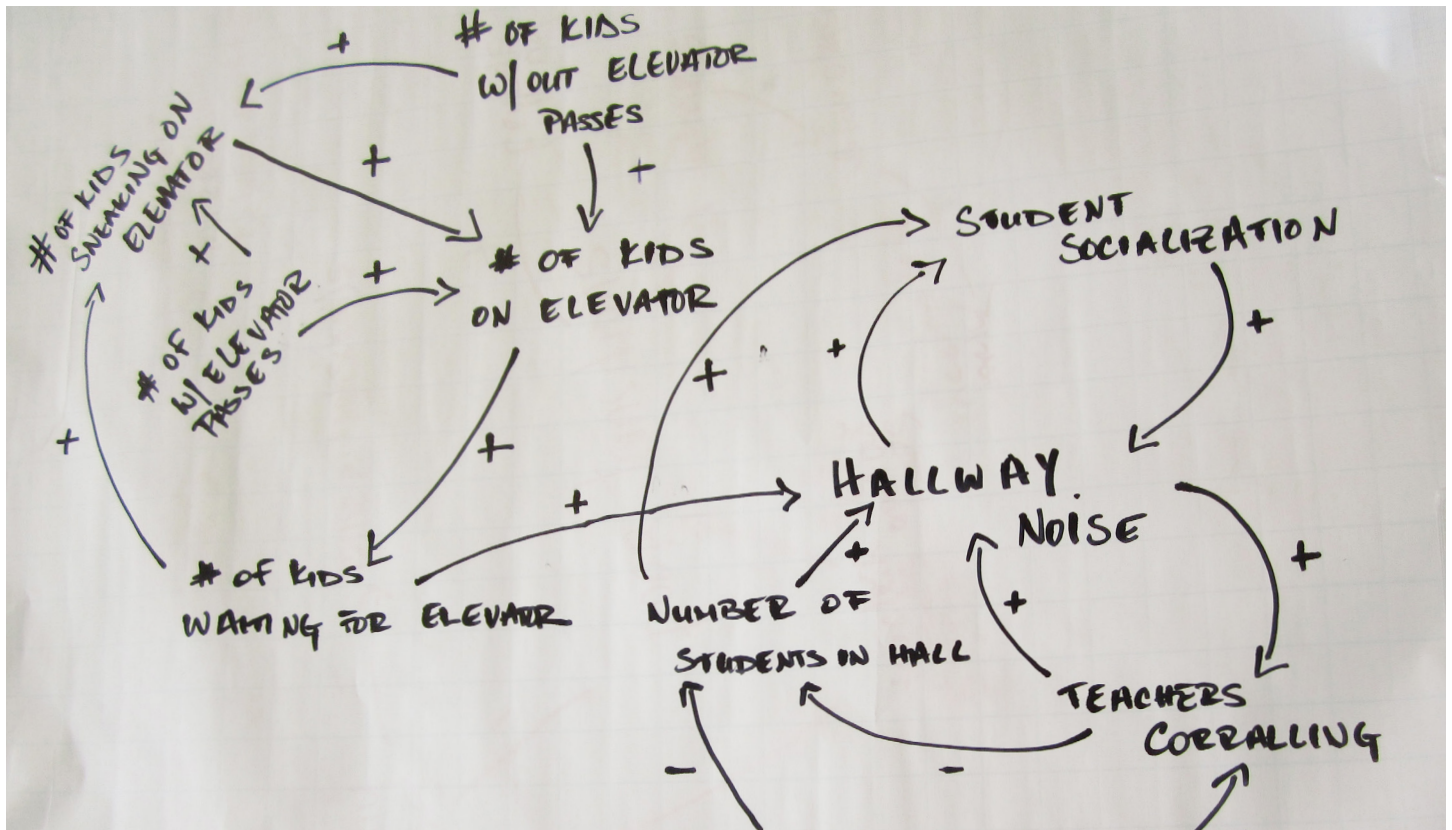 # OF KIDS
W/OUT ELEVATOR
PASSES
+
+
+
# OF KIDS
SNEAKING ON
ELEVATOR
+
# OF KIDS
W/ELEVATOR
PASSES
+
# OF KIDS
ON ELEVATOR
STUDENT
SOCIALIZATION
+
+
+
+
+
HALLWAY
NOISE
+
+
+
+
# OF KIDS
WAITING FOR ELEVATOR
NUMBER OF
STUDENTS IN HALL
+
TEACHERS
CORRALLING
-
-